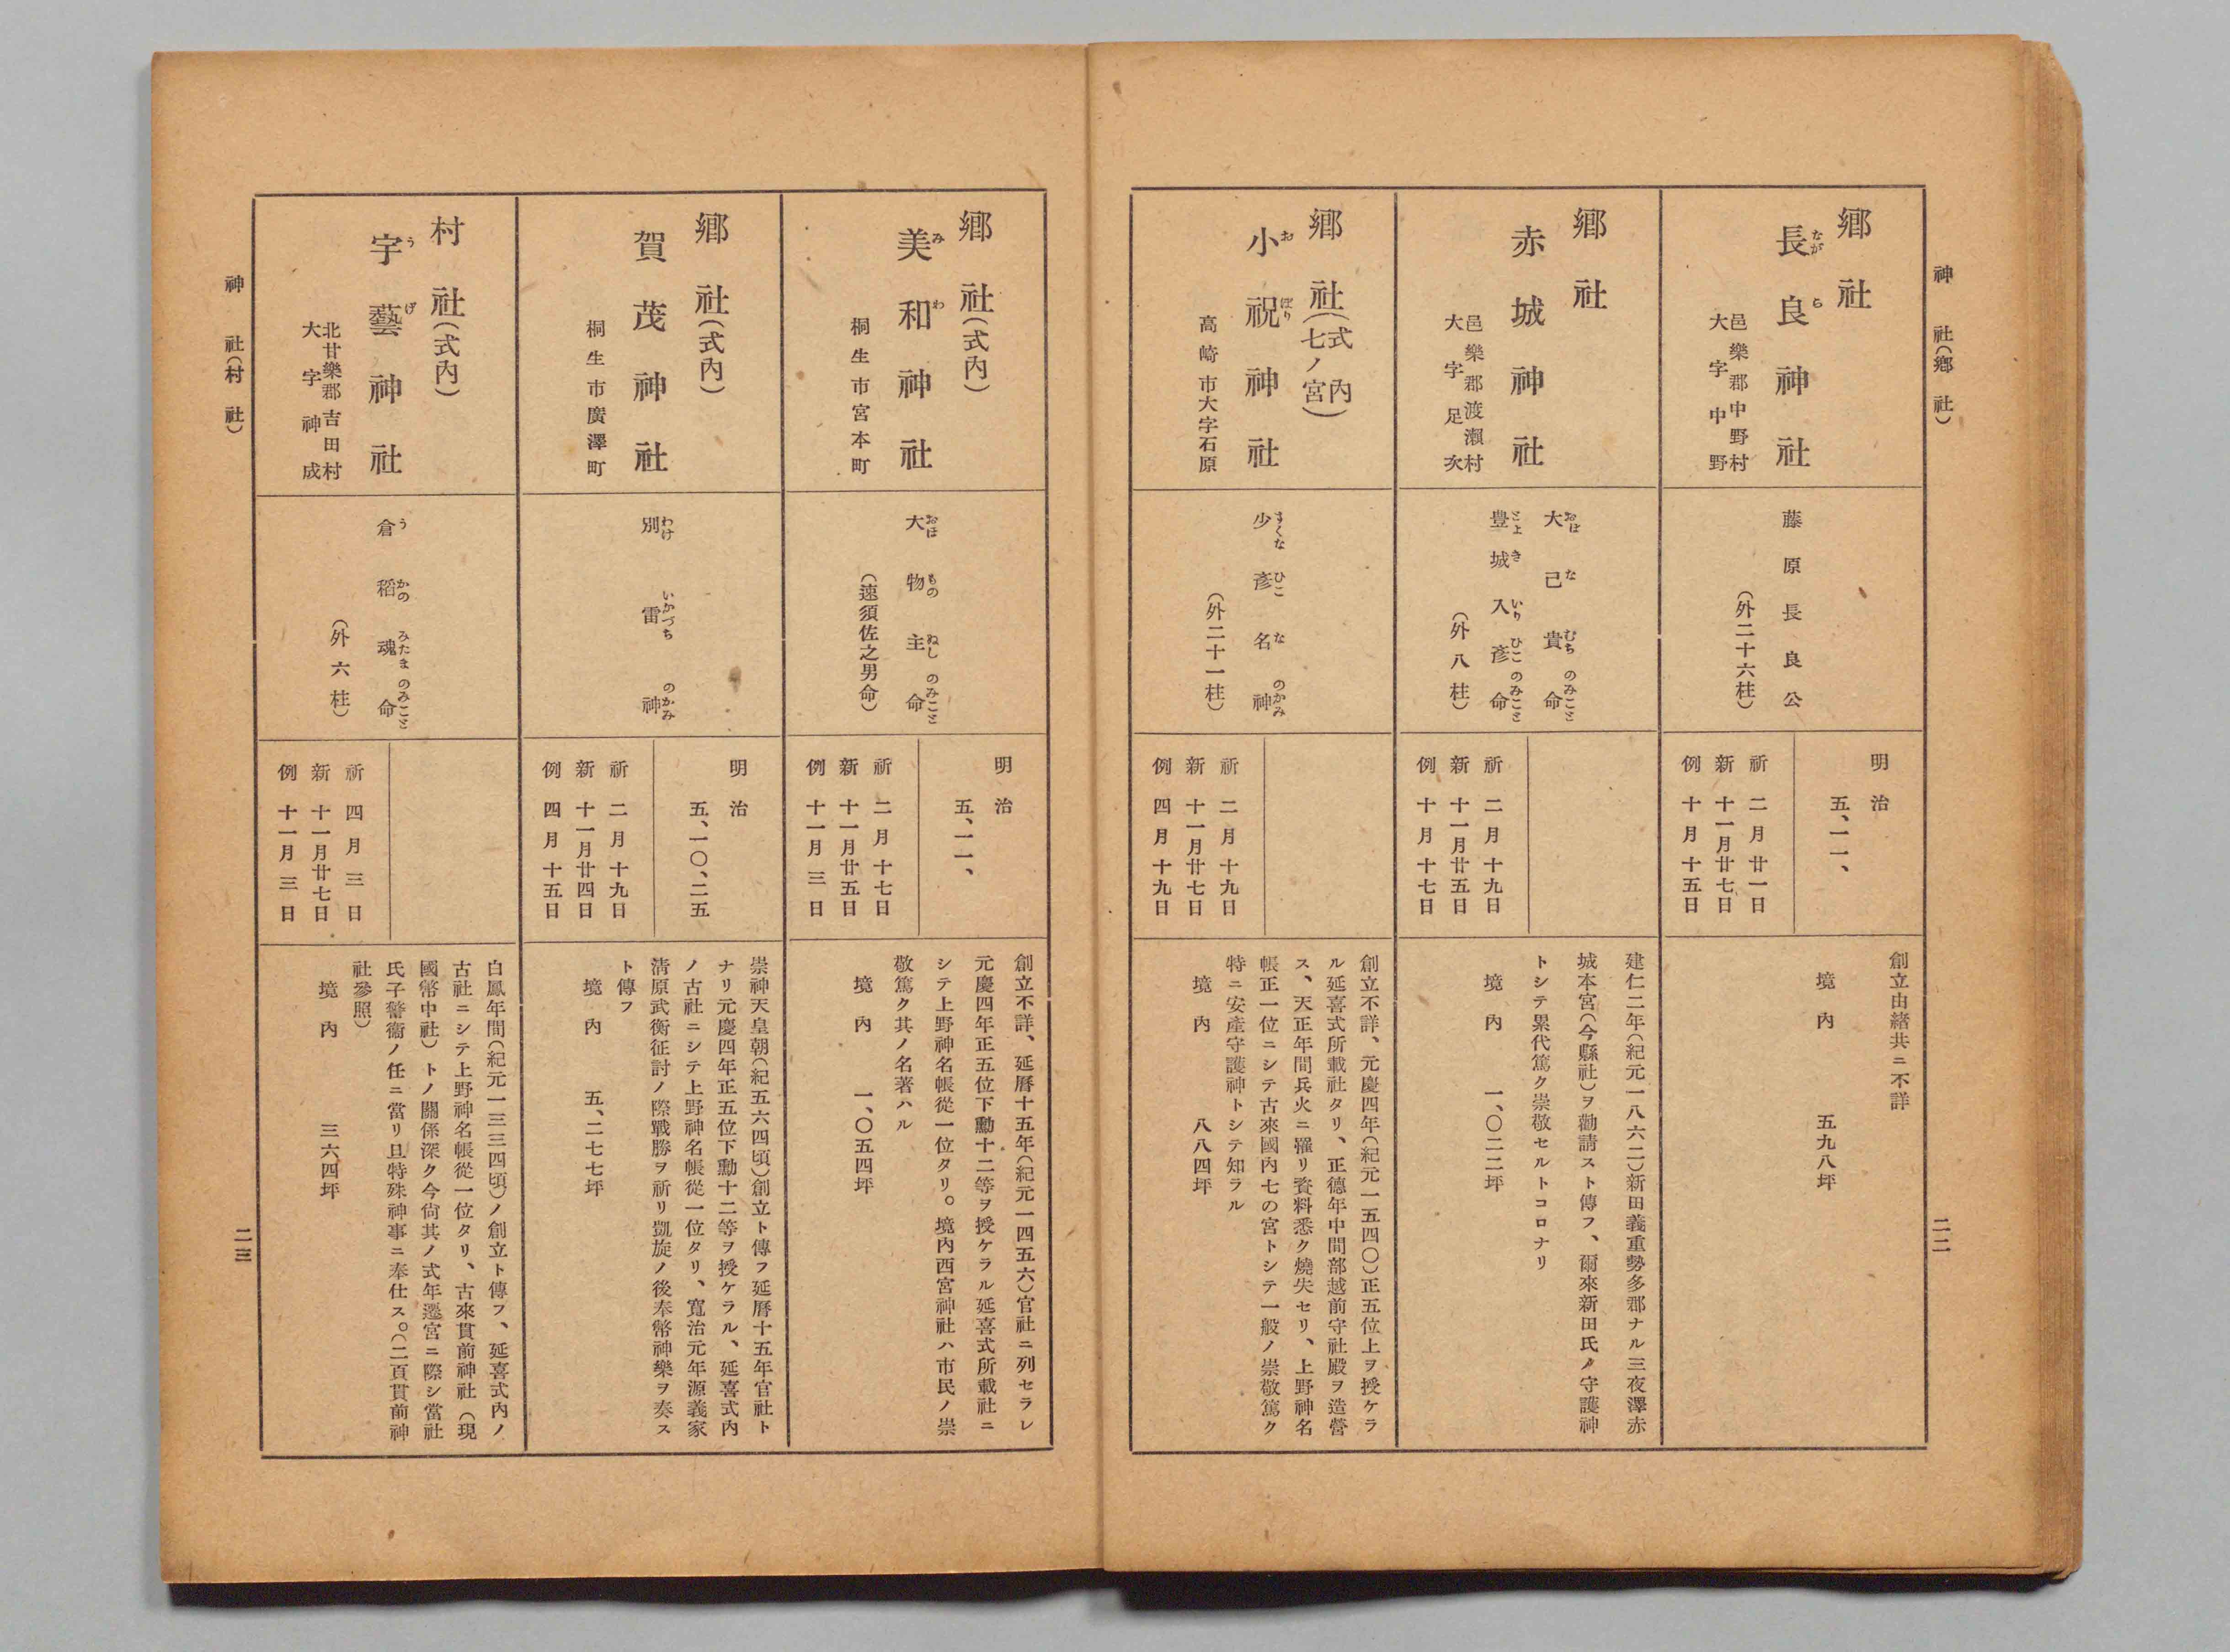 神社(鄕社)
二二
鄕社
長良神社
ながら
邑樂郡中野村
大字中野
藤原長良公
(外二十六柱)
明治
五、一一、
祈 二月廿一日
新 十一月廿七日
例 十月十五日
創立由緖共ニ不詳
境内 五九八坪
鄕社
赤城神社
邑樂郡渡瀨村
大字足次
大己貴命
おほなむちのみこと
豊城入彥命
とよきいりひこのみこと
(外八柱)
祈 二月十九日
新 十一月廿五日
例 十月十七日
建仁二年(紀元一八六二)新田義重勢多郡ナル三夜澤赤
城本宮(今縣社)ヲ勸請スト傳フ、爾來新田氏ノ守護神
トシテ累代篤ク崇敬セルトコロナリ
境内 一、〇二二坪
鄕社(式内)
(七ノ宮)
小祝神社
おぼり
高崎市大字石原
少彥名神
すくなひこなのかみ
(外二十一柱)
祈 二月十九日
新 十一月廿七日
例 四月十九日
創立不詳、元慶四年(紀元一五四〇)正五位上ヲ授ケラ
ル延喜式所載社タリ、正德年中間部越前守社殿ヲ造營
ス、天正年間兵火ニ罹リ資料悉ク燒失セリ、上野神名
帳正一位ニシテ古來國内七の宮トシテ一般ノ崇敬篤ク
特ニ安產守護神トシテ知ラル
境内 八八四坪
鄕社(式内)
美和神社
みわ
桐生市宮本町
大物主命
おほものぬしのみこと
(速須佐之男命)
明治
五、一一、
祈 二月十七日
新 十一月廿五日
例 十一月三日
創立不詳、延曆十五年(紀元一四五六)官社ニ列セラレ
元慶四年正五位下勳十二等ヲ授ケラル延喜式所載社ニ
シテ上野神名帳從一位タリ。境内西宮神社ハ市民ノ崇
敬篤ク其ノ名著ハル
境内 一、〇五四坪
鄕社(式内)
賀茂神社
桐生市廣澤町
別雷神
わけいかづちのかみ
明治
五、一〇、二五
祈 二月十九日
新 十一月廿四日
例 四月十五日
崇神天皇朝(紀五六四頃)創立ト傳フ延曆十五年官社ト
ナリ元慶四年正五位下勳十二等ヲ授ケラル、延喜式内
ノ古社ニシテ上野神名帳從一位タリ、寬治元年源義家
淸原武衡征討ノ際戰勝ヲ祈リ凱旋ノ後奉幣神樂ヲ奏ス
ト傳フ
境内 五、二七七坪
村社(式内)
宇藝神社
うげ
北甘樂郡吉田村
大字神成
倉稻魂命
うかのみたまのみこと
(外六柱)
祈 四月三日
新 十一月廿七日
例 十一月三日
白鳳年間(紀元一三三四頃)ノ創立ト傳フ、延喜式内ノ
古社ニシテ上野神名帳從一位タリ、古來貫前神社(現
國幣中社)トノ關係深ク今尙其ノ式年遷宮ニ際シ當社
氏子警衞ノ任ニ當リ且特殊神事ニ奉仕ス。(二頁貫前神
社參照)
境内 三六四坪
神社(村社)
二三